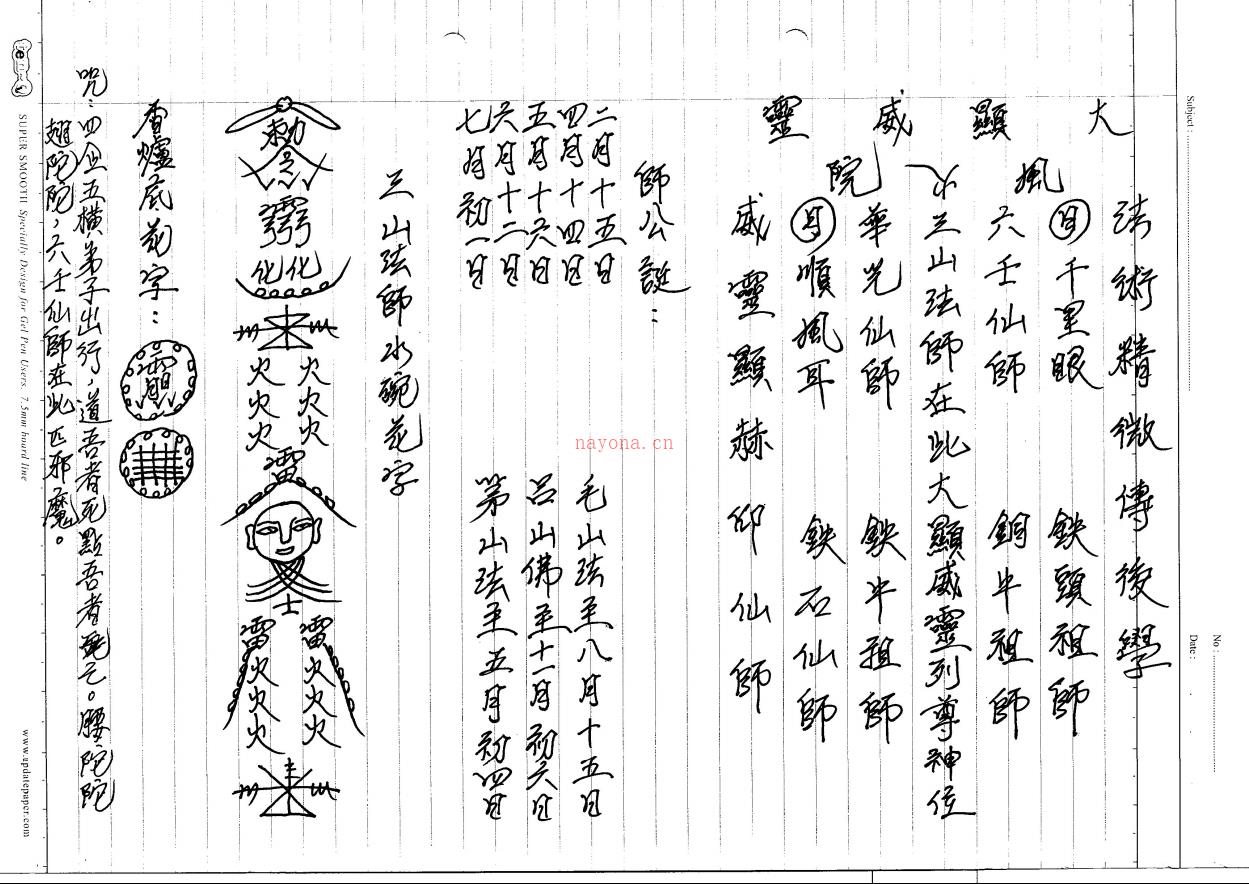 大顯威靈
風火院
法術精微傳後學
日千里眼 鉄頭祖師
六壬仙師 銅牛祖師
三山法師在此大顯威靈列尊神位
華光仙師 鉄牛祖師
月順風耳 鉄石仙師
威靈顯赫仰仙師
師公誕：
二月十五日 毛山法主八月十五日
四月十四日
五月十六日 呂山佛主十一月初六日
六月十二日
七月初一日 茅山法主五月初四日
三山法師水碗花字
勅
化化
火火
火火
火火
雷
士
雷雷
火火
火火
火火
香爐底花字：
咒：四企五橫弟子出行，道吾者死點吾者亡。腰陀陀
翅陀陀，六壬仙師在此匹邪魔。
Subject :
No :
Date :
SUPER SMOOTH Specially Design for Gel Pen Users. 7.5mm board line
www.updatepaper.com
nayona.cn